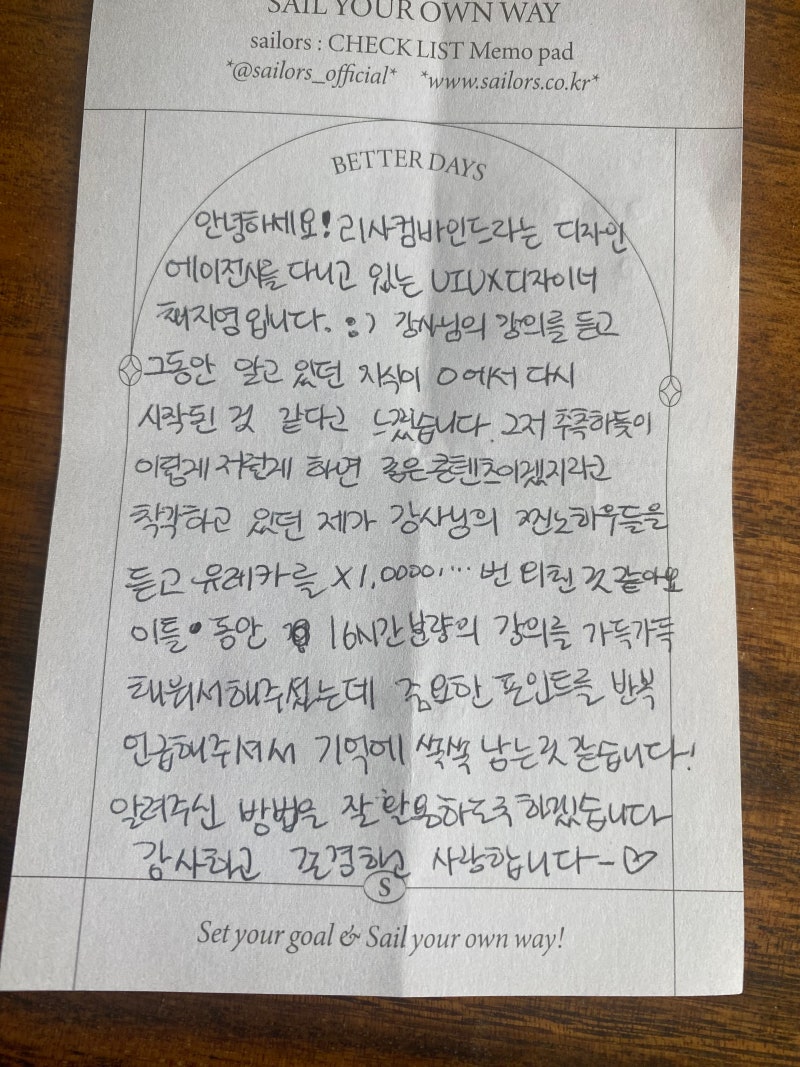 SAIL YOUR OWN WAY
sailors : CHECK LIST Memo pad
*@sailors_official* *www.sailors.co.kr*
BETTER DAYS
안녕하세요! 리사컴바인드라는 디자인
에이전시를 다니고 있는 UIUX디자이너
채지영입니다. :) 강사님의 강의를 듣고
그동안 알고 있던 지식이 0에서 다시
시작된 것 같다고 느꼈습니다. 그저 추측하듯이
이렇게 저렇게 하면 좋은콘텐츠이겠지라고
착각하고 있던 제가 강사님의 찐노하우들을
듣고 유레카를 X1,0000.... 번 외친 것 같아요
이틀 동안 16시간분량의 강의를 가득가득
채워서해주셨는데 중요한 포인트를 반복
언급해주셔서 기억에 쏙쏙 남는것 같습니다!
알려주신 방법을 잘 활용하도록 하겠습니다
감사하고 존경하고 사랑합니다~♡
S
Set your goal & Sail your own way!